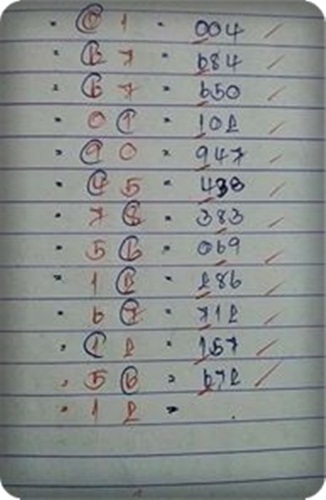 = 0 1 = 004 /
= 6 7 = 684 /
= 6 7 = 650 /
= 0 1 = 102 /
= 9 0 = 947 /
= 4 5 = 438 /
= 7 8 = 383 /
= 5 6 = 069 /
= 1 2 = 286 /
= 6 7 = 712 /
= 1 2 = 157 /
= 5 6 = 672 /
= 1 2 = .